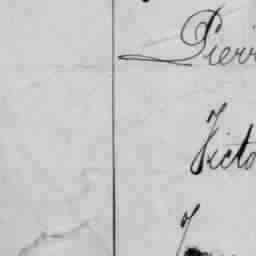 Pierr
Victo